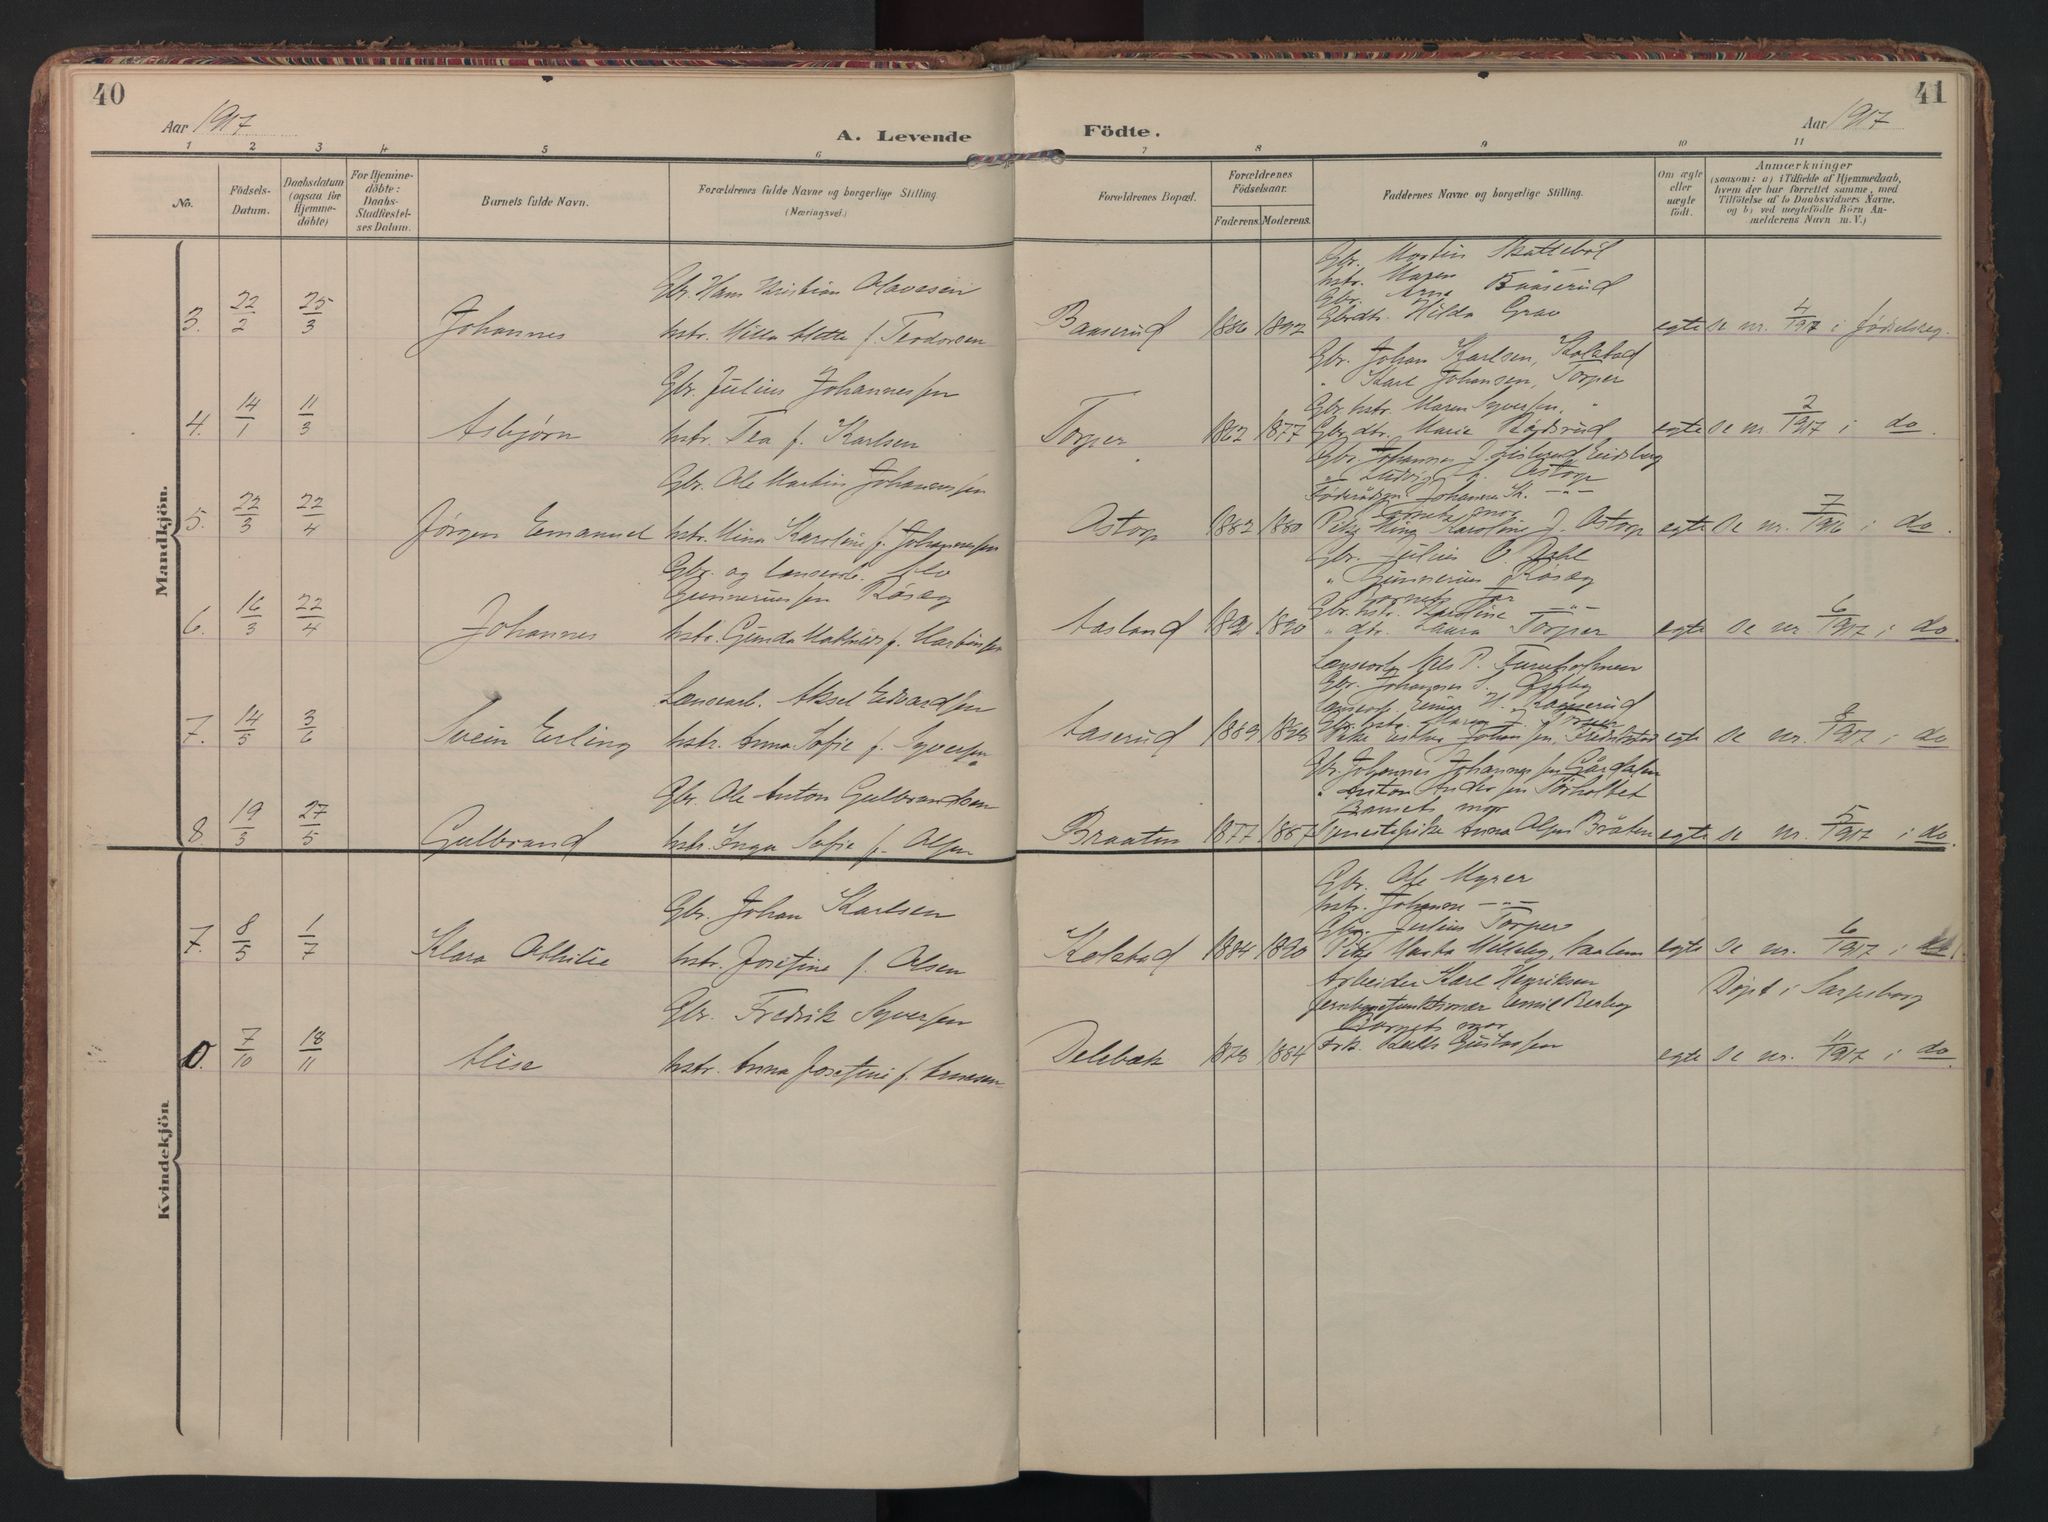 40
41
Aar 1917
A. Levende
Födte.
Aar 1917
1 2 3 4 5 6 7 8 9 10 11
No.
Födsels-
Datum.
Daabsdatum
(ogsaa for
Hjemme-
döbte)
For Hjemme-
döbte:
Daabs-
Stadfæstel-
ses Datum.
Barnets fulde Navn.
Forældrenes fulde Navne og borgerlige Stilling.
(Næringsvei.)
Forældrenes Bopæl.
Forældrenes
Födselsaar.
Faderens.
Moderens.
Faddernes Navne og borgerlige Stilling.
Om ægte
eller
uægte
födt.
Anmærkninger
(saasom: a) i Tilfælde af Hjemmedaab,
hvem der har forrettet samme, med
Tilföielse af to Daabsvidners Navne,
og b) ved uægtefödte Börn An-
melderens Navn m. V.)
Mandkjön.
3. 22/2 25/3 Johannes
Gbr. Hans Kristian Olavesen
hstr. Milla Mette f. Teodorsen
Baaserud 1886 1892
Gbr. Martin Skattebøl
hstr. Maren
Gbr. Arne Baaserud
Gbrdtr. Hilda Grav
egte se nr. 4/1917 i fødselsreg.
4. 14/1 11/3 Asbjørn
Gbr. Julius Johannessen
hstr. Tea f. Karlsen
Torper 1862 1877
Gbr. Johan Karlsen, Kolstad
" Karl Johansen, Torper
Gbr. hstr. Maren Syversen, "
Gbr. dtr. Marie
egte se nr. 2/1917 i do.
5. 22/3 22/4 Jørgen Emanuel
Gbr. Ole Martin Johannessen
hstr. Mina Karoline f. Johannessen
Ostorp 1882 1880
Gbr. Johannes J. Eidsberg
" Ludvig J. Ostorp
Johannes K. -"-
Barnets mor
Pike Karoline J. Ostorp
egte se nr. 7/1916 i do.
6. 16/3 22/4 Johannes
Gbr. og landsarb.
Gunneriussen Røsæg
hstr. Gunda Mathilde f. Martinsen
Aasland 1892 1890
Gbr. Julius O. Dahl
" Gunnerius Røsæg
Barnets far
Gbr. hstr. Karoline -"-
" dtr. Laura Torper
egte se nr. 6/1917 i do.
7. 14/5 3/6 Svein Erling
Landsarb. Aksel Edvardsen
hstr. Anna Sofie f. Syversen
Aaserud 1889 1898
Nils P.
Gbr. Johannes S. Østby
Gbr. hstr. Maren J. Torper
Pike Johansen, Fredrikstad
egte se nr. 8/1917 i do
8. 19/3 27/5 Gulbrand
Gbr. Ole Anton Gulbrandsen
hstr. Inga Sofie f. Olsen
Braaten 1877 1887
Gbr. Johannes Johannessen Gårdalen
" Anton Andersen Torholtet
Barnets mor
Tjenestepike Anna Olsen Bråten
egte se nr. 5/1917 i do.
Kvindekjön.
7. 8/5 1/7 Klara Othilie
Gbr. Johan Karlsen
hstr. Josefine f. Olsen
Kolstad 1884 1890
Gbr. Ole Myrer
hstr. Johanne -"-
Gbr. Julius Torper
Pike Marta
egte se nr. 6/1917 i do.
0. 7/10 18/11 Alise
Gbr. Fredrik Syversen
hstr. Anna Josefine f. Arnesen
Delebæk 1878 1884
Arbeider Karl Henriksen
Jernbanefunktionær Emil Berby
Barnets mor
Frk. Ruth Gustavsen
egte
Døpt i Sarpsborg
se nr. 11/1917 i do